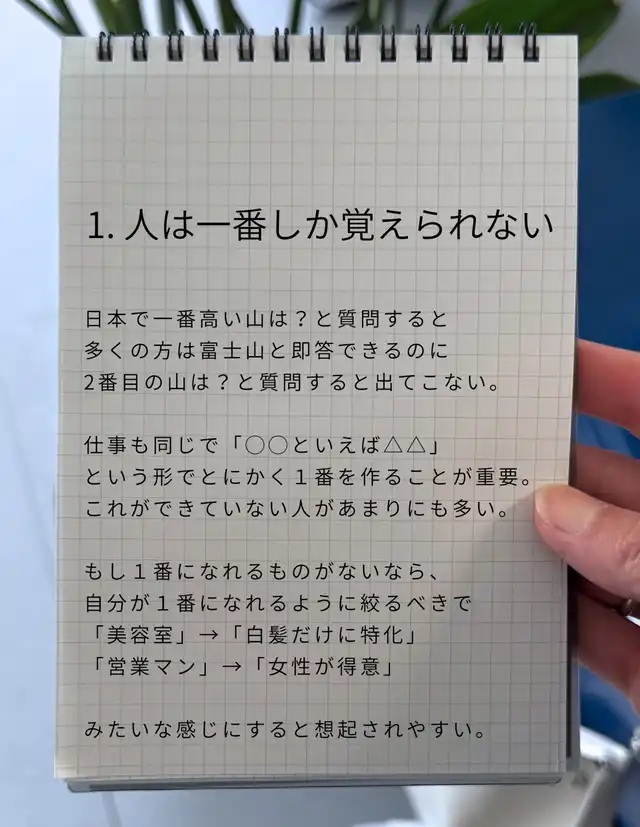 1. 人は一番しか覚えられない
日本で一番高い山は？と質問すると
多くの方は富士山と即答できるのに
2番目の山は？と質問すると出てこない。
仕事も同じで「○○といえば△△」
という形でとにかく１番を作ることが重要。
これができていない人があまりにも多い。
もし１番になれるものがないなら、
自分が１番になれるように絞るべきで
「美容室」→「白髪だけに特化」
「営業マン」→「女性が得意」
みたいな感じにすると想起されやすい。